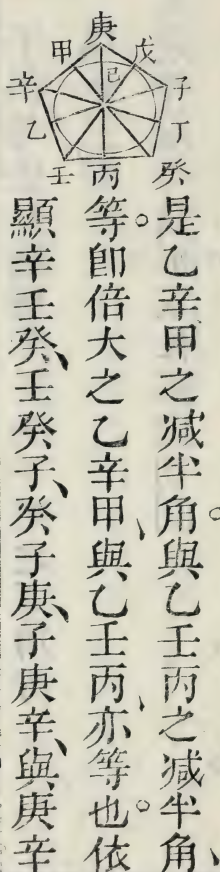 庚
甲
戊
己
辛
子
乙
丁
壬
丙
癸
是乙辛甲之减半角與乙壬丙之减半角
等。卽倍大之乙辛甲、與乙壬丙、亦等也。依
顯辛壬癸、壬癸子、癸子庚、子庚辛、與庚辛